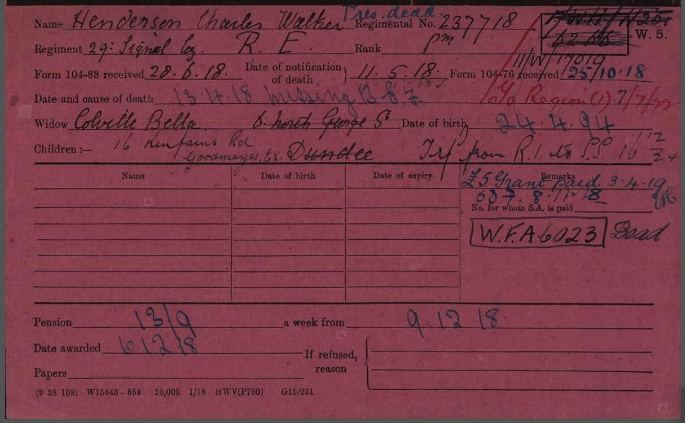 Name Henderson Charles Walker Pres. dead Regimental No. 237718 W. 5.
Regiment 29: Signal Coy. R. E. Rank Pnr 11/W/17019
Form 104-88 received 28.6.18. Date of notification of death } 11.5.18. Form 104-76 received 25/10.18
Date and cause of death 13.4.18 missing To Region (1) 7/7/22
Widow Colville Bella. 6. North George St Date of birth 24.4.94
Children:— 16 Rd Goodmayes. Ex. Dundee Trf from R.1. to S.S.
Name Date of birth Date of expiry. Remarks
£5 Grant paid 3-4-19
8.11.18
No. for whom S.A. is paid
W.F.A.6023 Dead
Pension 13/9 a week from 9.12.18
Date awarded 6 12 18
If refused, reason
Papers
(9 38 108) W15643—854 10,000 1/18 HWV(P750) G15/251